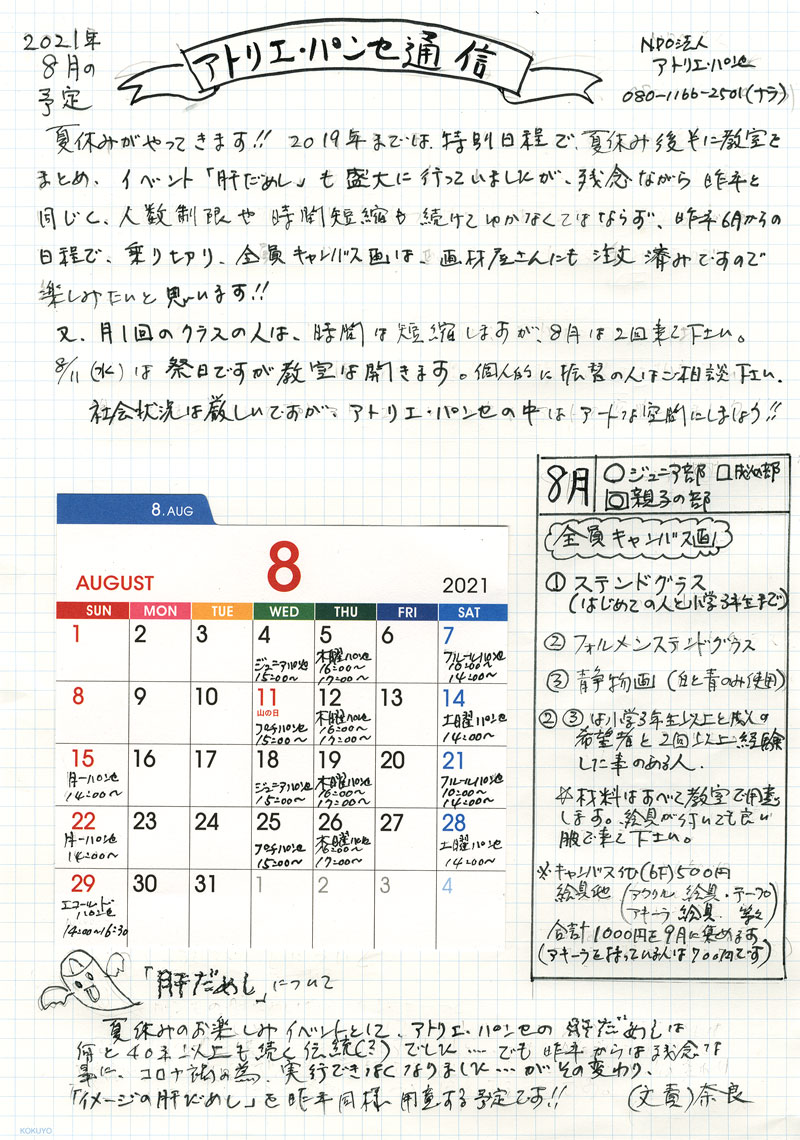 2021年
8月の
予定
アトリエ・パンセ通信
NPO法人
アトリエ・パンセ
080-1166-2501(ナラ)
夏休みがやってきます!! 2019年までは、特別日程で、夏休み後半に教室を
まとめ、イベント「肝だめし」も盛大に行っていましたが、残念ながら昨年と
同じく、人数制限や時間短縮も続けてゆかなくてはならず、昨年6月からの
日程で、乗り切り、全員キャンバス画は、画材屋さんにも注文済みですので
楽しみたいと思います!!
又、月1回のクラスの人は、時間は短縮しますが、8月は2回来て下さい。
8/11(水)は祭日ですが教室は開きます。個人的に振替の人はご相談下さい.
社会状況は厳しいですが、アトリエ・パンセの中はアートな空間にしましょう!!
8月 ○ジュニア部 □成人部
◎親子の部
全員キャンバス画
① ステンドグラス
(はじめての人と小学3年生まで)
② フォルメンステンドグラス
③ 静物画 (白と青のみ使用)
② ③ は小学3年生以上と成人の
希望者と2回以上経験
した事のある人.
※材料はすべて教室で用意
します。絵具が付いても良い
服で来て下さい。
※キャンバス代(6F)500円
絵具他 (アクリル絵具・テープ
アキーラ絵具 等々)
合計1000円を9月に集めます
(アキーラを持っている人は700円です)
8.AUG
8
AUGUST 2021
SUN MON TUE WED THU FRI SAT
1 2 3 4 5 6 7
ジュニアパンセ 15:00〜 木曜パンセ 16:00〜 17:00〜 フルールパンセ 10:00〜 14:00〜
8 9 10 11 12 13 14
山の日 プチパンセ 15:00〜 木曜パンセ 16:00〜 17:00〜 土曜パンセ 14:00〜
15 16 17 18 19 20 21
月一パンセ 14:00〜 ジュニアパンセ 15:00〜 木曜パンセ 16:00〜 17:00〜 フルールパンセ 10:00〜 14:00〜
22 23 24 25 26 27 28
月一パンセ 14:00〜 プチパンセ 15:00〜 木曜パンセ 16:00〜 17:00〜 土曜パンセ 14:00〜
29 30 31 1 2 3 4
エコールド パンセ 14:00〜16:30
「肝だめし」について
夏休みのお楽しみイベントとして、アトリエ・パンセの肝だめしは
何と40年以上も続く伝統(?)でした…でも昨年からは残念な
事に、コロナ禍の為、実行できなくなりました…がその変わり、
「イメージの肝だめし」を昨年同様、用意する予定です!! (文責)奈良
KOKUYO